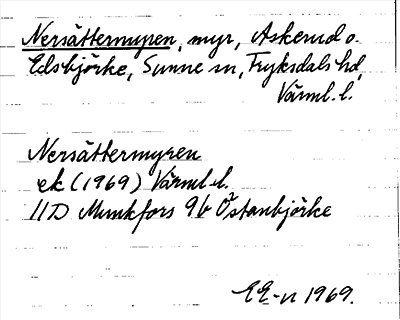 Nersättermyren, myr, Askerud o.
Edsbjörke, Sunne sn, Fryksdals hd,
Värml. l.
Nersättermyren
ek (1969) Värml. l.
11D Munkfors 9b Östanbjörke
EE-n 1969.